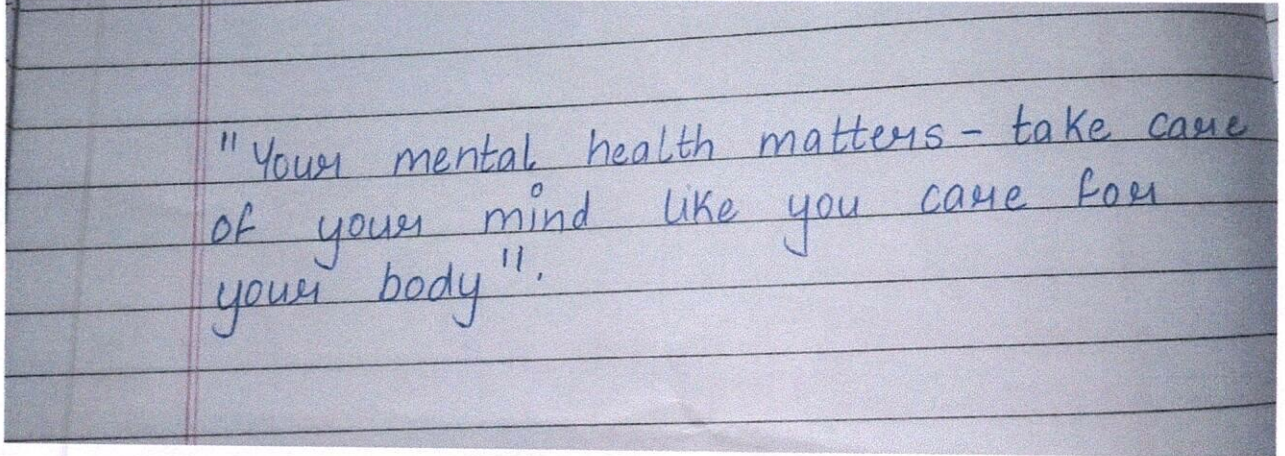 "Your mental health matters - take care
of your mind like you care for
your body".